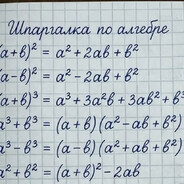 Шпаргалка по алгебре
(a+b)² = a² + 2ab + b²
a-b)² = a² - 2ab + b²
(a+b)³ = a³ + 3a²b + 3ab² + b³
a³+b³ = (a+b)(a²-ab+b²)
a³-b³ = (a-b)(a²+ab+b²)
a²+b² = (a+b)² - 2ab